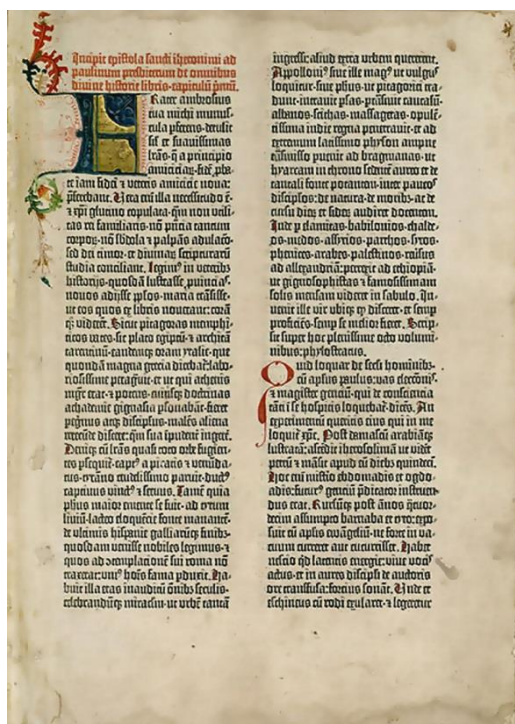 Incipit epistola sancti iheronimi ad
paulinum presbiterum de omnibus
divine historie libris·capitulũ pꝛimũ.
Frater ambrosius
tua michi munus-
cula pferens·detulit
sił et suavissimas
lrãs·q̃ a principio
amiciciaꝝ·fidẽ pba-
te iam fidei ⁊ veteris amicicie nova:
pferebant. Vera eni illa necessitudo ẽ·
⁊ xpi glutino copulata·qm̃ non utili-
tas rei familiaris·nõ pñcia tantum
corpoꝝ·nõ sbdola ⁊ palpans adulacõ·
sed dei timor·et divinaꝝ scripturarũ
studia conciliant. Legim⁹ in veteribꝫ
historijs·quosdã lustrasse ꝓuincias·
novos adijsse pplos·maria trãsisse·
ut eos quos ex libris noverant: corã
qꝫ viderẽt. Sicut pitagoras memphi-
ticos vates·sic plato egiptũ ⁊ architã
tarentinũ·eandemqꝫ oram ytalie·que
quondã magna grecia dicebat᷑:labo-
riosissime peragravit·et ut qui athenis
mgr̃ erat·⁊ potens·cuiusqꝫ doctrinas
achademie gignasia psonabãt·fieret
peginus atqꝫ discipulus·malẽs aliena
verecunde discere:qm̃ sua ĩpudent̃ ingerẽ.
Deniqꝫ cũ lrãs quasi toto orbe fugien-
tes psequit᷑·captꝰ a piratis ⁊ venũda-
tus·tyrãno crudelissimo paruit·ductꝰ
captivus vinctꝰ ⁊ servus. Tamẽ quia
phũs maior emente se fuit·ad tytum
liviũ·lacteo eloquẽtie fonte manantẽ·
de ultimis hispanie galliarũqꝫ finibꝫ·
quosdam venisse nobiles legimus·⁊
quos ad cõtemplacionẽ sui roma nõ
traxerat:uniꝰ hoĩs fama pduxit. Ha-
buit illa etas inauditũ õnibꝫ seculis·
celebrandũqꝫ miraculũ·ut urbẽ tantã
ingressi:aliud extra urbem quererent.
Appolloniꝰ sive ille magꝰ ut vulgus
loquitur·sive phũs·ut pitagorici tra-
dunt·intravit psas·ptrãsivit caucasũ·
albanos·scithas·massagetas·opulẽ-
tissima indie regna penetravit·et ad
extremum latissimo physon ampne
trãsmisso puenit ad bragmanas·ut
hyarcam in throno sedentẽ aureo et de
tantali fonte potantem·inter paucos
discipłos·de natura·de moribꝫ·ac de
cursu dieꝝ et sideꝝ audiret docentem.
Inde p elamitas·babilonios·chalde-
os·medos·assyrios·parthos·syros·
phenices·arabes·palestinos·reversus
ad allexandriã:perrexit ad ethiopiã·
ut gignosophistas ⁊ famosissimam
solis mensam videret in sabulo. In-
venit ille vir ubiqꝫ qꝺ disceret·et semp
proficiẽs·semp se melior fieret. Scrip-
sit super hoc plenissime octo volumi-
nibus:phylostratus.
Quid loquar de seculi hominibꝫ·
cũ aplus paulus:vas electionis·
⁊ magister genciũ·qui de consciencia
tãti ĩ se hospitis loquebat᷑·dicẽs. An
experimentũ queritis eius qui in me
loquit᷑ xp̃c. Post damascũ arabiãqꝫ
lustratã:ascẽdit iherosolimã ut videt̃
petrũ ⁊ mãsit apud eũ diebꝫ quindeci.
Hoc eni misterio ebdomadis et ogdo-
adis:futurꝰ genciũ pdicator instruen-
dus erat. Rursũqꝫ post ãnos q̃tuor-
decim assumpto barnaba et tyto:expo-
suit cũ aplis evãgeliũ·ne forte in va-
cuum curreret aut cucurrisset. Habet
nescio qꝺ latentis energie·vive vocis
actus·et in aures discipli de auctoris
ore transfusa:forcius sonat. Unde et
eschineus cũ rodi exularet·⁊ legeretur